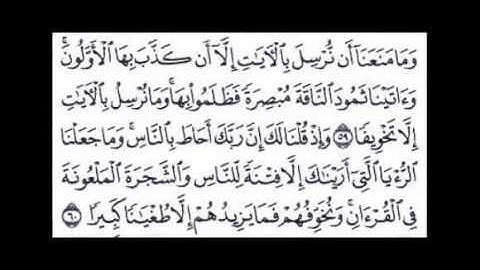 وَمَا مَنَعَنَآ أَن نُّرْسِلَ بِٱلْـَٔايَـٰتِ إِلَّآ أَن كَذَّبَ بِهَا ٱلْأَوَّلُونَ ۚ
وَءَاتَيْنَا ثَمُودَ ٱلنَّاقَةَ مُبْصِرَةً فَظَلَمُوا۟ بِهَا ۚ وَمَا نُرْسِلُ بِٱلْـَٔايَـٰتِ
إِلَّا تَخْوِيفًا ٥٩ وَإِذْ قُلْنَا لَكَ إِنَّ رَبَّكَ أَحَاطَ بِٱلنَّاسِ ۚ وَمَا جَعَلْنَا
ٱلرُّءْيَا ٱلَّتِىٓ أَرَيْنَـٰكَ إِلَّا فِتْنَةً لِّلنَّاسِ وَٱلشَّجَرَةَ ٱلْمَلْعُونَةَ
فِى ٱلْقُرْءَانِ ۚ وَنُخَوِّفُهُمْ فَمَا يَزِيدُهُمْ إِلَّا طُغْيَـٰنًا كَبِيرًا ٦٠